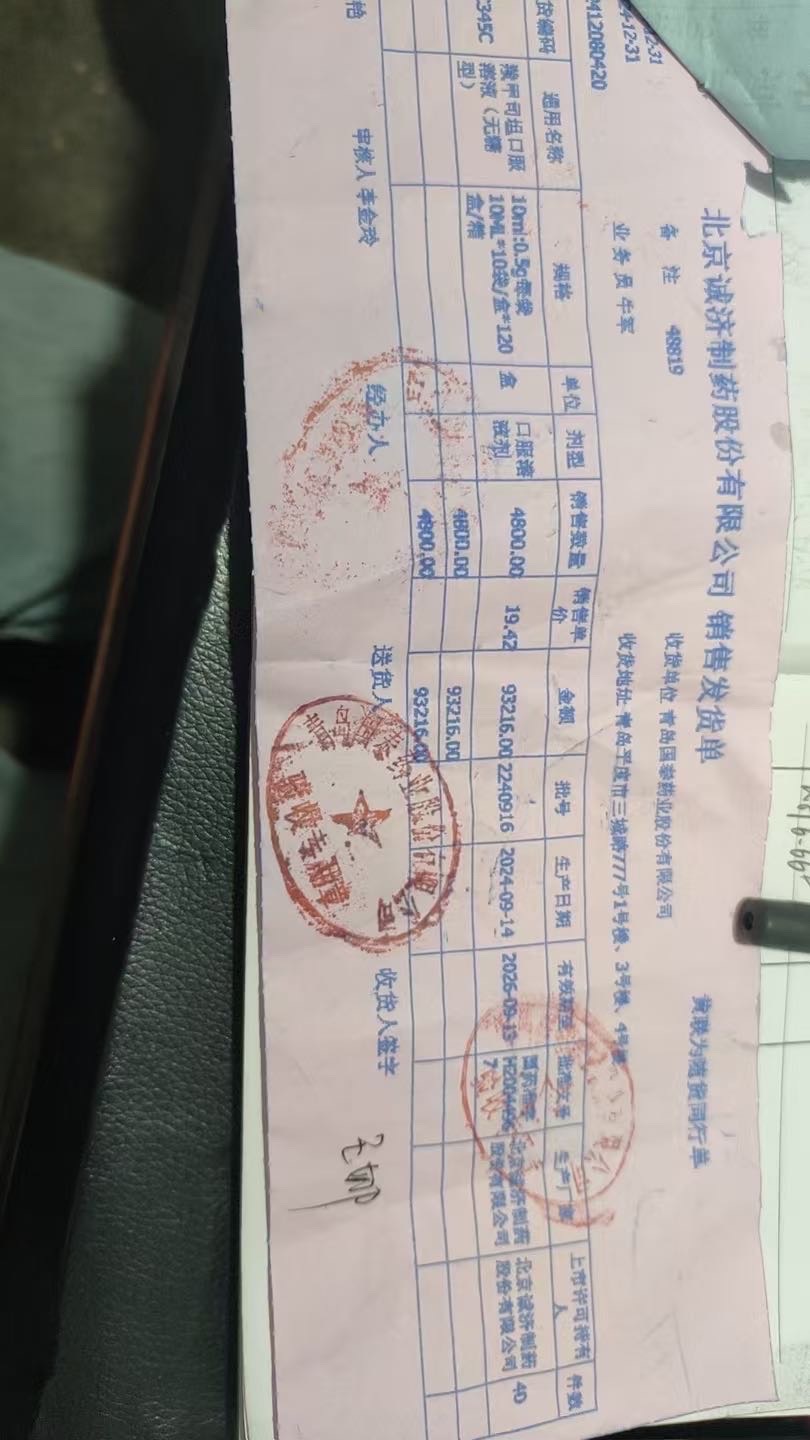 北京诚济制药股份有限公司 销售发货单
黄联为随货同行单
12-31
备 注 48819
收货单位 青岛国泰药业股份有限公司
4-12-31
业务员 牛军
收货地址 青岛平度市三城路777号1号楼、3号楼、4号
412080420
货编码 通用名称 规格 单位 剂型 销售数量 销售单价 金额 批号 生产日期 有效期至 批准文号 生产厂家 上市许可持有人 件数
C345C 羧甲司坦口服溶液（无糖型） 10ml:0.5g每袋 10ML*10袋/盒*120盒/箱 盒 口服溶液剂 4800.00 19.42 93216.00 2240916 2024-09-14 2026-09-13 北京诚济制药股份有限公司 北京诚济制药股份有限公司 40
4800.00 93216.00
4800.00 93216.00
艳 审核人 李金玲 经办人 送货人 收货人签字
验收专用章